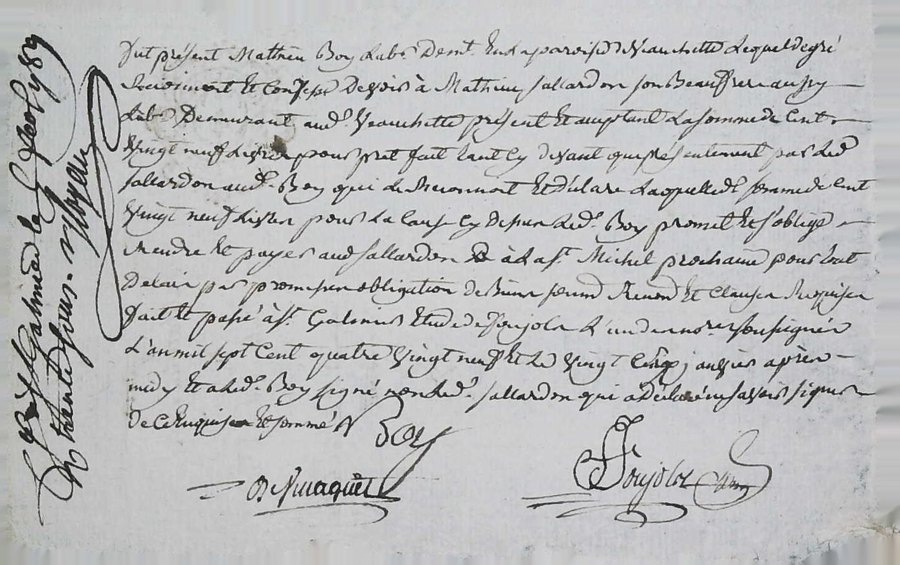 fut présent Mathieu Boy Labr Demt En La paroisse Veauchette Lequel degré
Reconnoit Et Confesse Devoir à Mathieu Sallardon son Beaufrere aussy
Labr Demeurant audt Veauchette présent Et acceptant La somme de Cent
vingt neuf Livres pour pret fait tant Cy devant que présentement par Led
Sallardon audt Boy qui Le Reconnoit Et déclare Laquelle de somme de Cent
vingt neuf Livres pour La Cause Cy dessus Ledt Boy promet Et s'oblige
Rendre Et payer aud Sallardon à La St Michel prochaine pour tout
Delais par promesse obligation de Biens soumis Renon Et Clauses Requises
fait Et passé à St Galmier Etude de Poujolz L'un des nores soussignés
L'an mil sept Cent quatre vingt neuf Et Le vingt Cinq janvier après
midy Et a Ledt Boy signé non Ledt Sallardon qui a Déclaré ne savoir signer
de Ce Enquis Et sommé
Boy
Poujolz
St Galmier le 89
trente sous